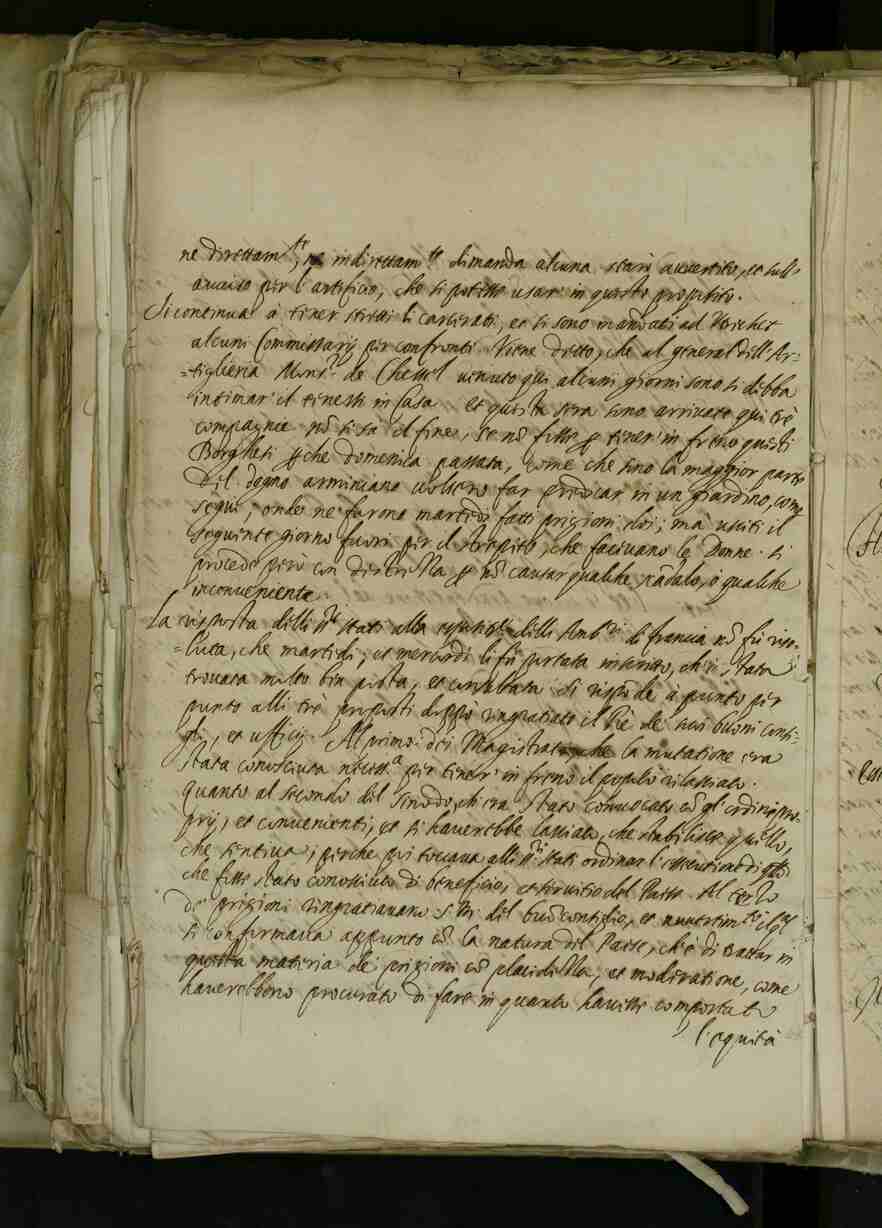 ne direttam.te, ne indirettam.te dimanda alcuna starò auuertito, et sull'
auuiso per l'artificio, che si potesse usar in questo proposito.
Si continua à tener stretti li carcerati, et si sono mandati ad Vtrichet
alcuni Commissarij per confronti. Viene detto, che al general dell'Ar=
=tiglieria Mons.r de Chessel uenuto qui alcuni giorni sono si debba
intimar il tenersi in Casa et questa sera sono arriuate qui trè
compagnie nõ si sà il fine, se nõ fusse p tener in freno questi
Borghesi p che domenica passata, come che sono la maggior parte
del dogno arminiano uolsero far predicar in un giardino, come
seguì, onde ne furono martedì fatti prigioni doi; mà usciti il
seguente giorno fuori per il strepito, che faceuano le Donne. si
procede però con destrezza p nõ causar qualche scãdalo, ò qualche
inconueniente.
La risposta delli SS.ri Stati alla espositione delli Amb.ri di francia nõ fù riso=
=luta, che martedì, et mercordì li fù portata in scritto, ch'è stata
trouata molto ben posta, et consultata di risponde à punto per
punto alli trè proposti doppò ringratiato il Rè de suoi buoni consi=
gli, et ufficij. Al primo dei Magistrati che la mutatione era
stata conosciuta necess.a per tener in freno il populo rilassato.
Quanto al secondo del sinodo, ch'era stato conuocato cõ gl'ordini pro=
prij, et conuenienti, et si hauerebbe lassiato, che stabilisse quello,
che sentiua; perche poi toccaua alli SS.ri Stati ordinar l'essecutione di q̃llo
che fusse stato conosciuto di beneficio, et seruitio del Paese. Al terzo
de prigioni ringratiauano S. M.tà del buõ consiglio, et
si confirmaua appunto cõ la natura del Paese, ch'è di trattar in
questa materia de prigioni cõ placidezza, et moderatione, come
hauerebbono procurato di fare in quanto hauesse comportato
l'equità